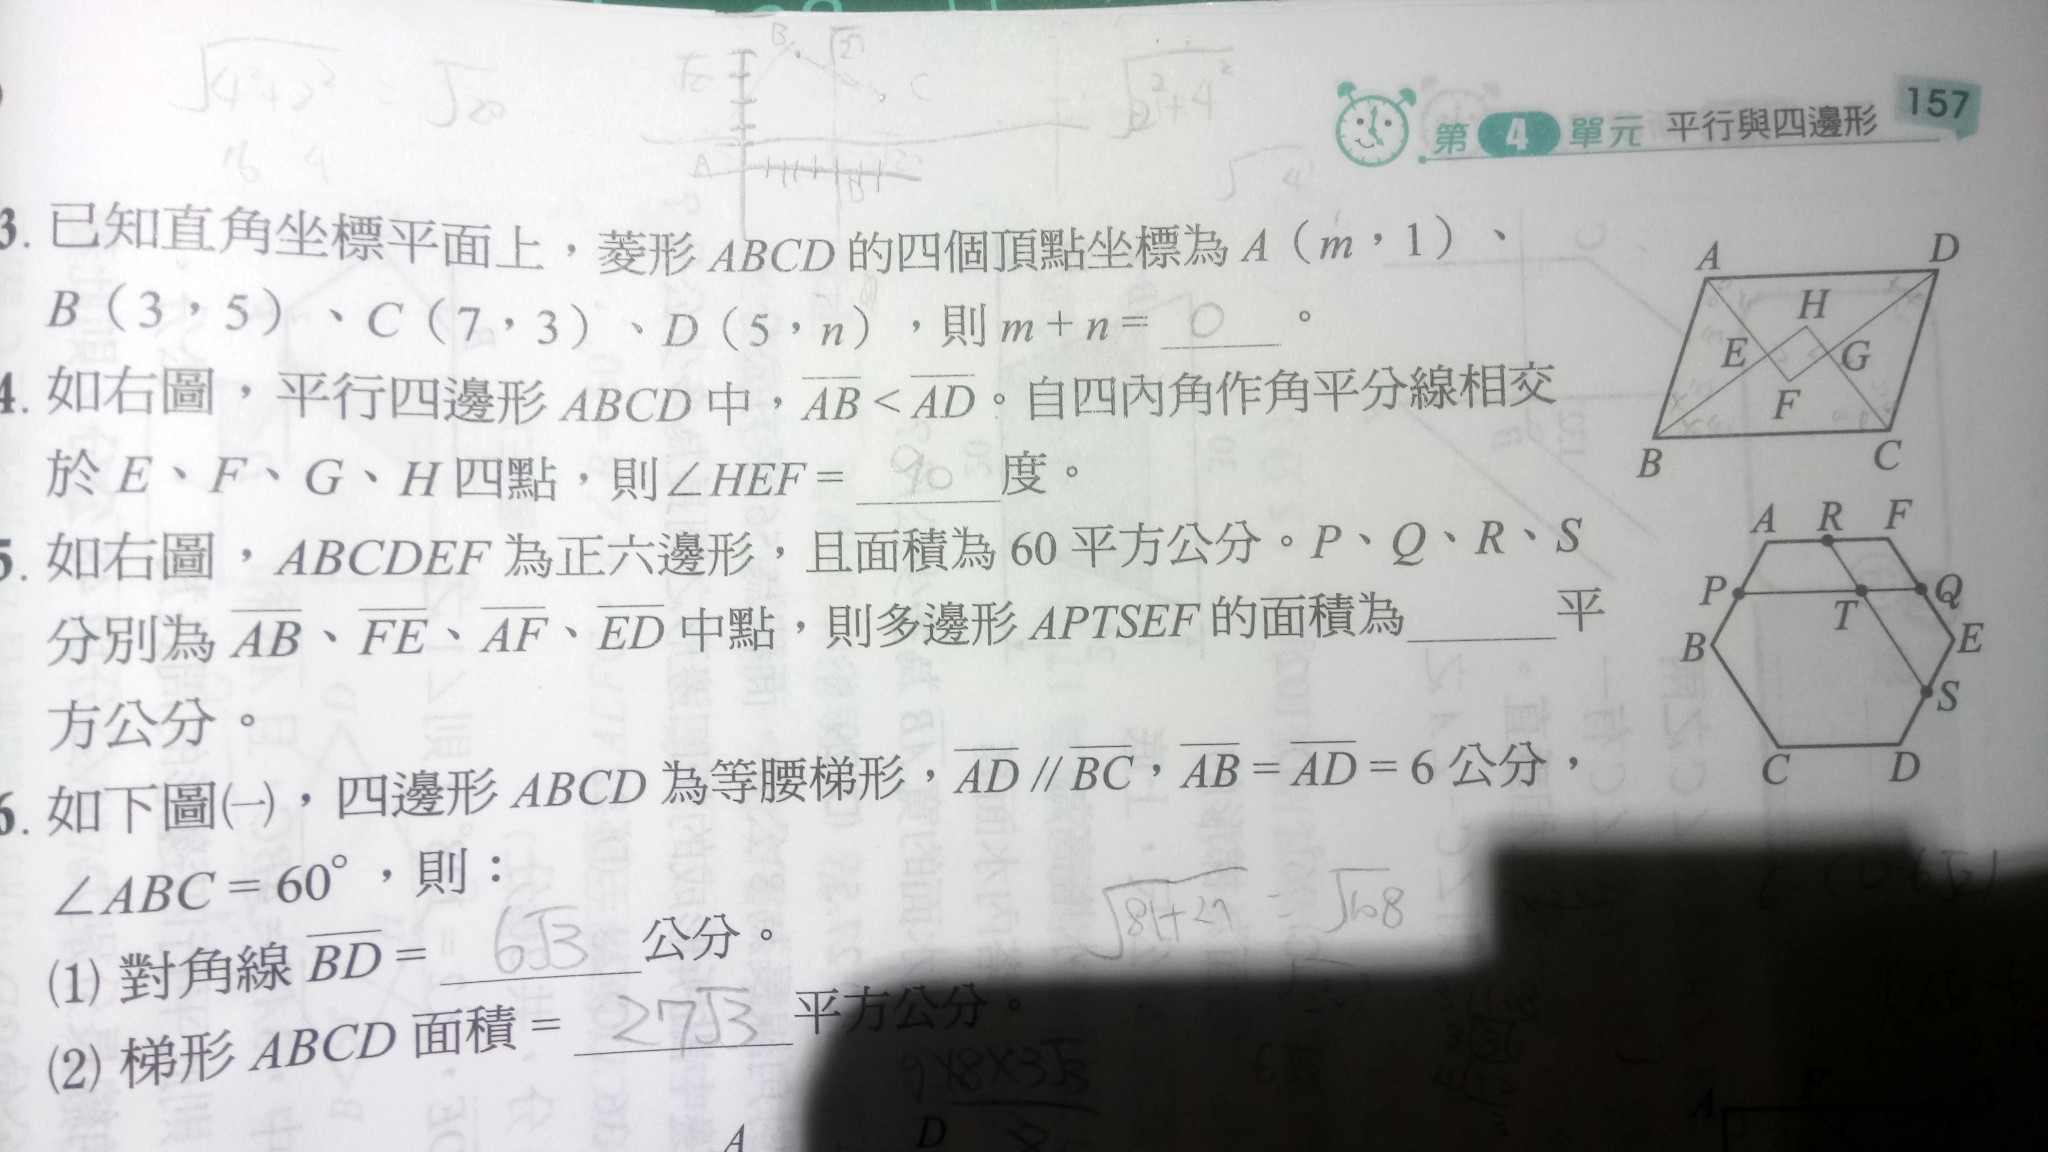 √4²+2² = √20
16 4
B
C
A
第4單元 平行與四邊形 157
3. 已知直角坐標平面上,菱形 ABCD 的四個頂點坐標為 A(m,1)、
B(3,5)、C(7,3)、D(5,n),則 m+n= 0 。
A D
H
E G
F
B C
4. 如右圖,平行四邊形 ABCD 中,AB<AD。自四內角作角平分線相交
於 E、F、G、H 四點,則∠HEF= 90 度。
5. 如右圖,ABCDEF 為正六邊形,且面積為 60 平方公分。P、Q、R、S
分別為 AB、FE、AF、ED 中點,則多邊形 APTSEF 的面積為 平
方公分。
A R F
P Q
T
B E
S
C D
6. 如下圖㈠,四邊形 ABCD 為等腰梯形,AD // BC,AB=AD=6 公分,
∠ABC=60°,則:
√81+27 = √108
(1) 對角線 BD= 6√3 公分。
(2) 梯形 ABCD 面積= 27√3 平方公分。
A D